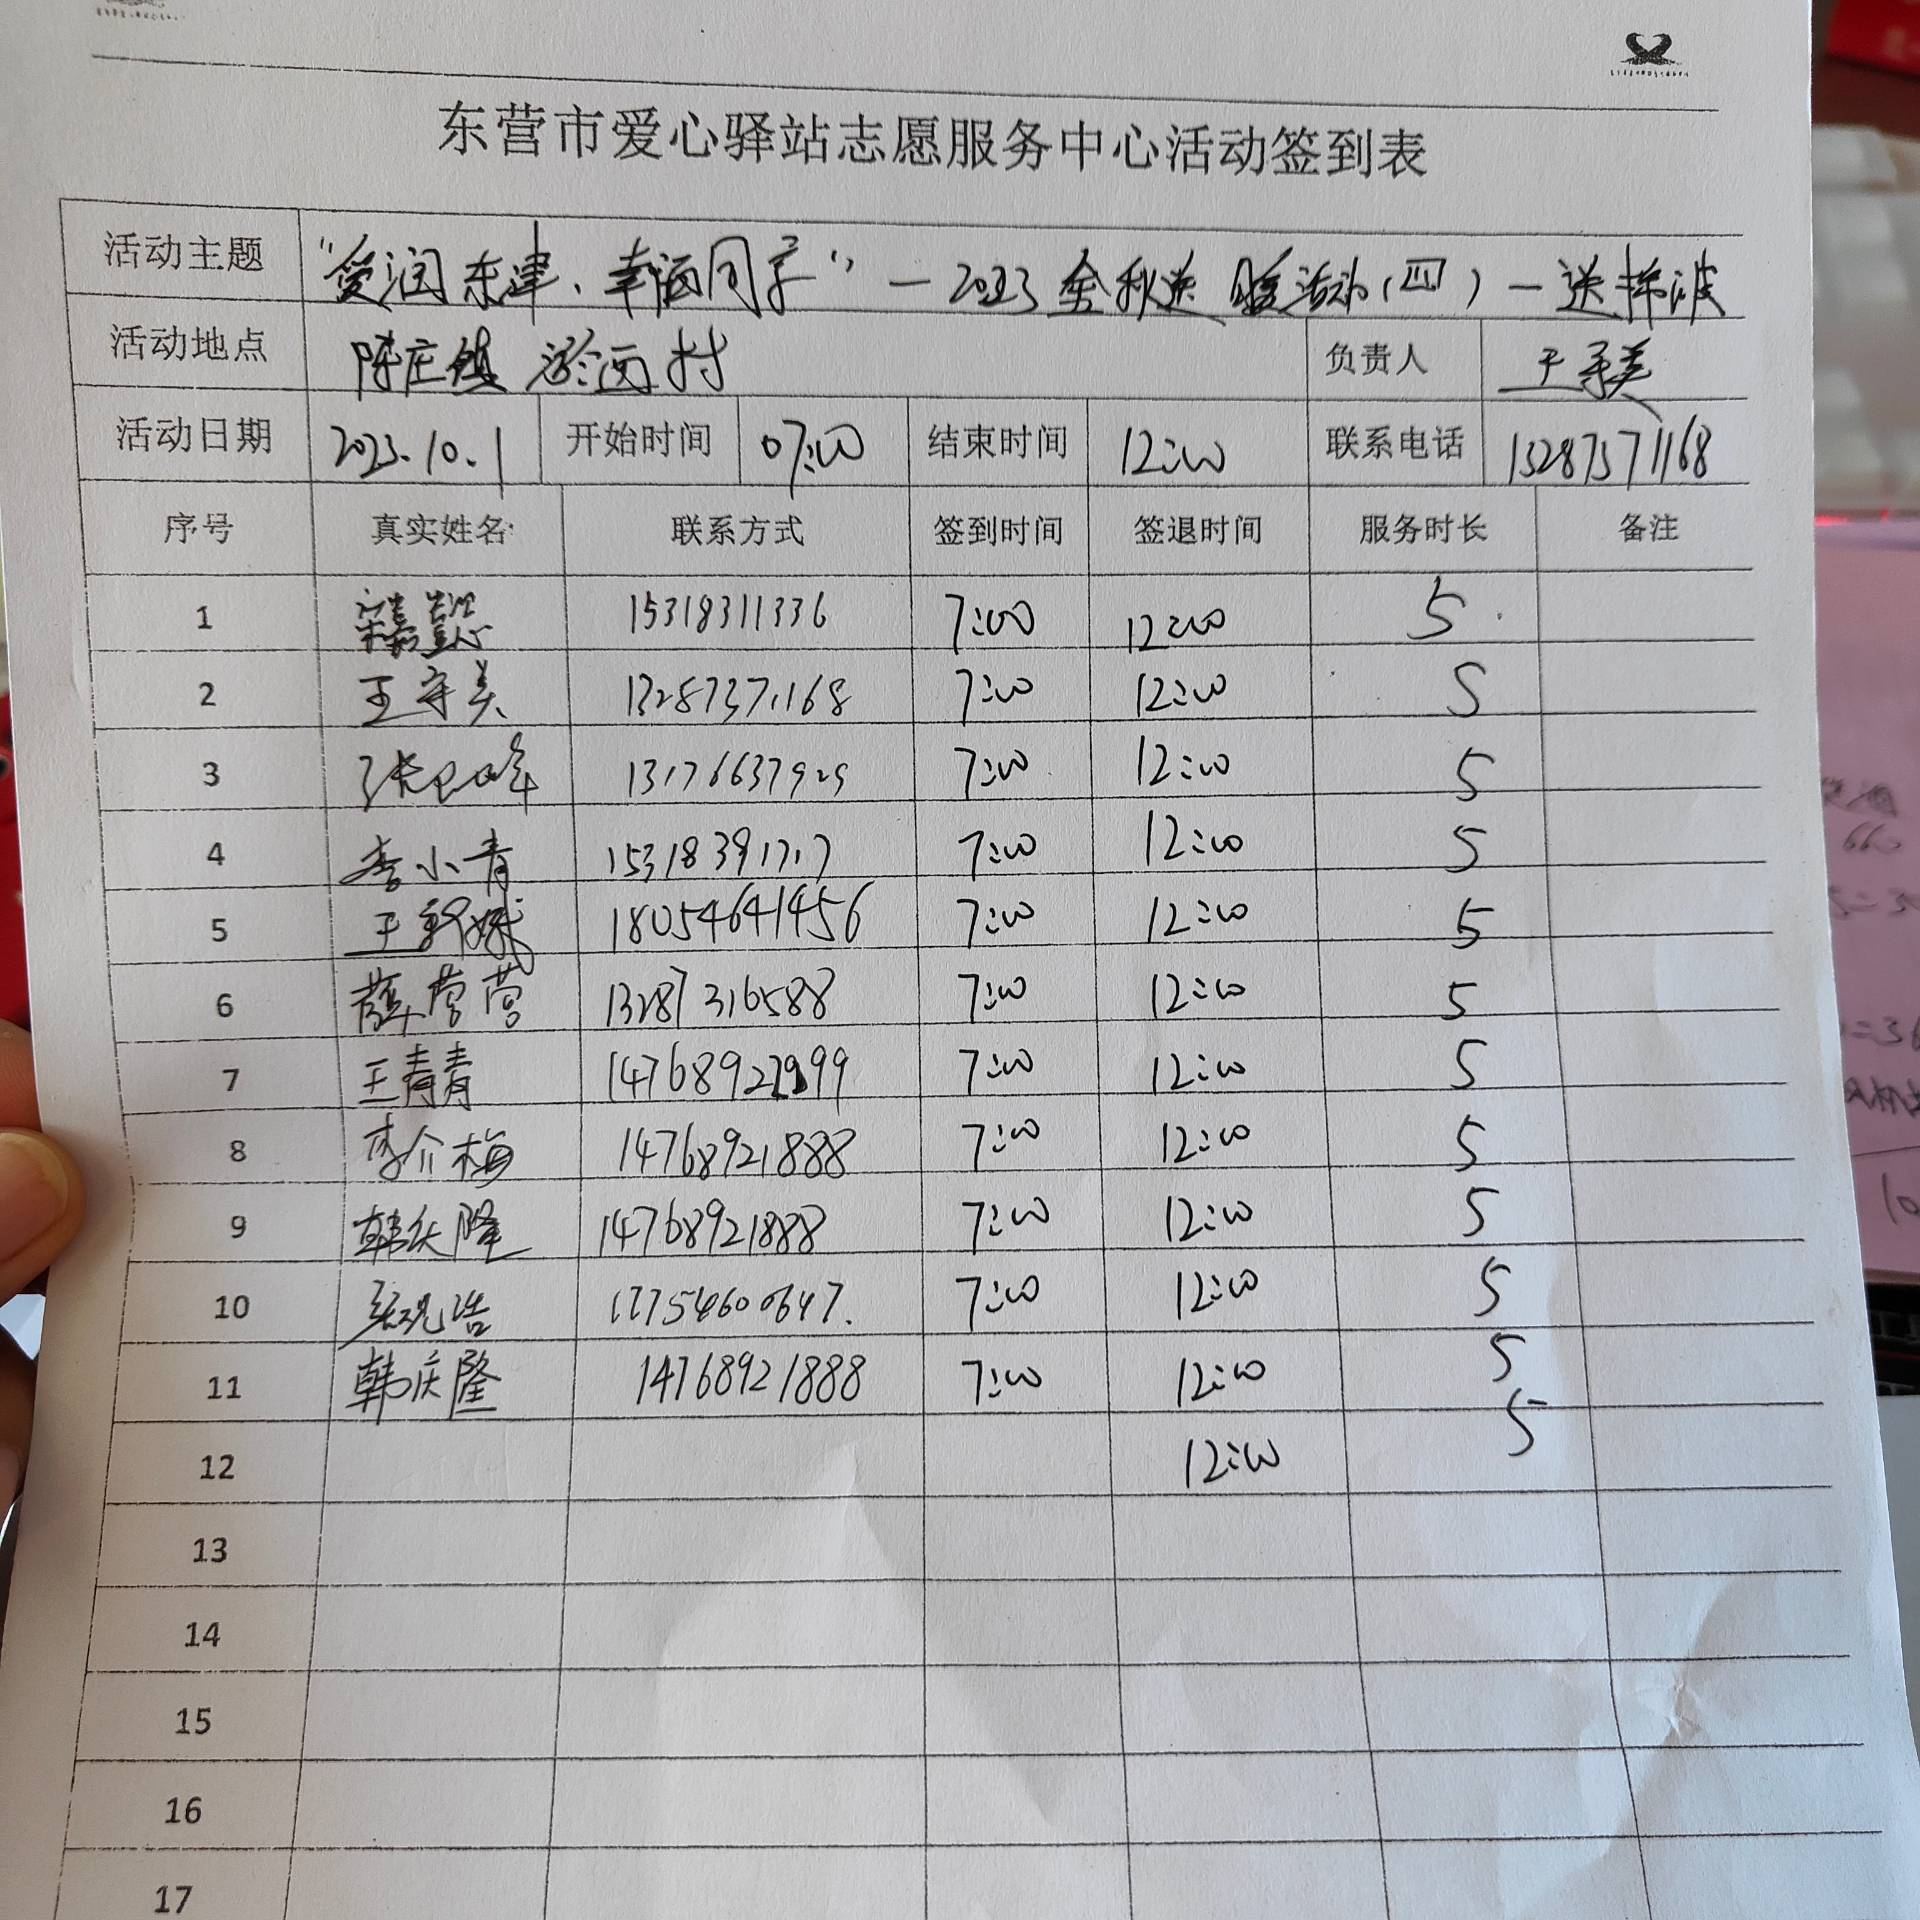 东营市爱心驿站志愿服务中心活动签到表
活动主题 "爱润东津、幸福同享"—2023金秋送暖活动(四)—送
活动地点 陈庄镇 西村 负责人 王守美
活动日期 2023.10.1 开始时间 07:00 结束时间 12:00 联系电话 13287371168
序号 真实姓名 联系方式 签到时间 签退时间 服务时长 备注
1 15318311336 7:00 12:00 5
2 王守美 13287371168 7:00 12:00 5
3 张 峰 13176637929 7:00 12:00 5
4 李小青 15318391717 7:00 12:00 5
5 王 18054641456 7:00 12:00 5
6 薛营营 13287316588 7:00 12:00 5
7 王青青 7:00 12:00 5
8 李介梅 14768921888 7:00 12:00 5
9 韩庆隆 14768921888 7:00 12:00 5
10 浩 17754600647. 7:00 12:00 5
11 韩庆隆 14768921888 7:00 12:00 5
12 12:00 5
13
14
15
16
17